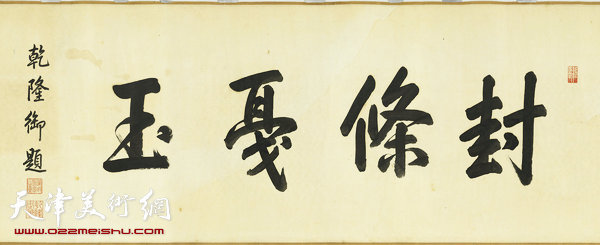 封條戛玉
乾隆御題
天津美術網
www.022meishu.com